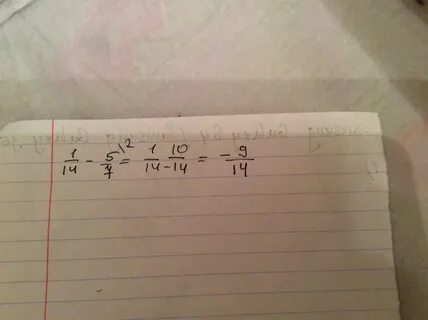 1/14 - 5/7\2 = 1/14 - 10/14 = -9/14